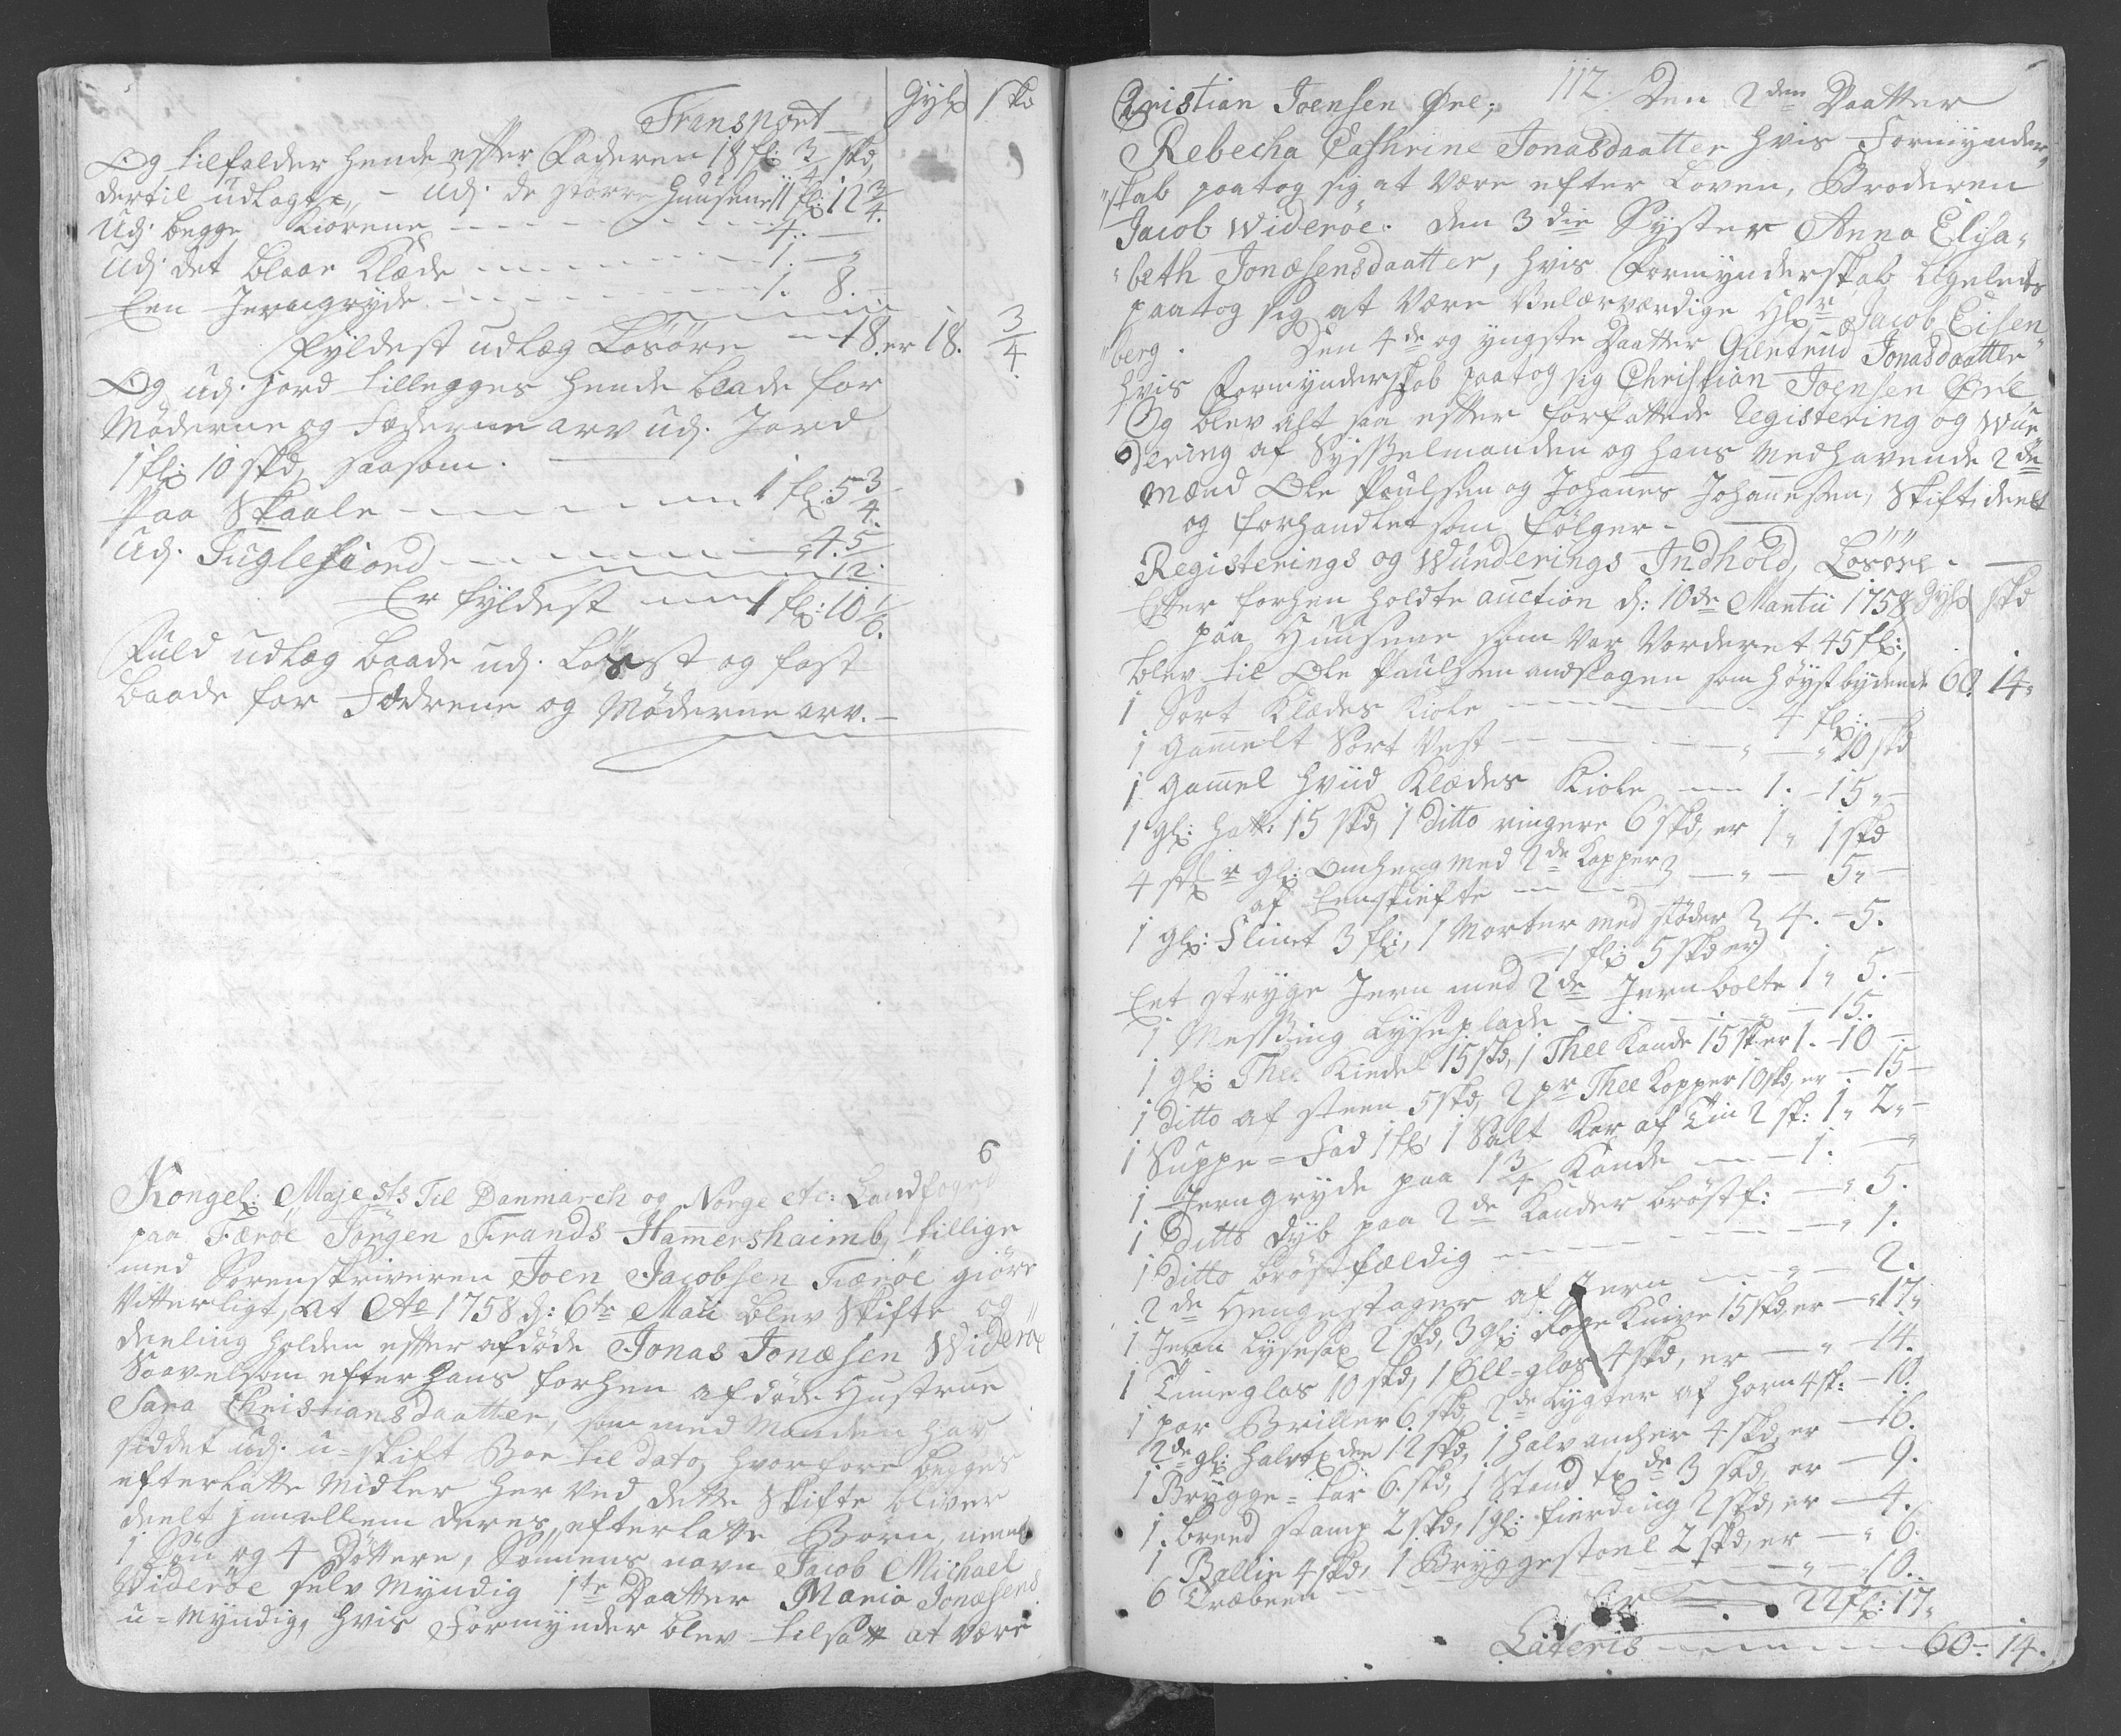 Transport Gyl skd
Og tilfalder hende effter Faderen 18 fl: 3/4 skd,
dertil udlagt, - Udj. de större Huusene 11 fl: 12 3/4.
Udj. begge Kiörene - - - 4. -
Udj. det blaae Klæde - - - 1. - "
Een Jerngryde - - - 1. 8. -
Fyldest udlæg Lösöre - 18. er 18. 3/4.
Og udj. Jord tillegges hende baade for
Möderne og Federne arv udj. Jord
1 fl: 10 skd, saasom. -
Paa Skaale - - - 1 fl: 5 3/4.
Udj. Fuglefiord - - - " 4. 5/12.
Er fyldest - - 1 fl: 10 1/6.
Fuld udlæg baade udj. Löst og fast
baade for Fædrene og Möderne arv. -
6
Kongel: Majests Til Danmarch og Norge etc: Landfoged
paa Færöe Jörgen Frands Hamershaimb, tillige
med Sorenskriveren Joen Jacobsen Færöe giöre
Vitterligt, at Ao 1758 d: 6te Maii blev Skifte og
deeling holden effter afdöde Jonas Jonæsen Wideröe
Saavelsom efter hans forhen afdöde Hustrue
Sara Christiansdaatter, som med Manden har
siddet udj. u-skift Boe til dato, hvorfore begges
efterlatte Midler her ved dette Skifte bliver
deelt imellem deres efterlatte Börn, neml:
1 Sön og 4 Döttere, Sönnens navn Jacob Michael
Wideröe selv Myndig 1te Daatter Maria Jonæsens
u-Myndig, hvis Formynder blev tilsatt at være
Christian Joensen Öre; 112. Den 2den Daatter
Rebecha Cathrine Jonasdaatter hvis Formynder,,
"skab paatog sig at være efter Loven, Broderen
Jacob Wideröe. den 3die Syster Anna Elisa,,
"beth Jonæsensdaatter, hvis Formynderskab ligeledes
paatog sig at være Velærværdige Hr Jacob Eisen,,
"berg. Den 4de og yngste Daatter Giertrud Jonasdaatter
hvis Formynderskab paatog sig Christian Joensen Öre
Og blev alt saa effter forfattede Registering og Wur
dering af Sysselmanden og hans medhavende 2de
Mænd Ole Poulsen og Johanes Johanesen, Skift, deelt
og forhandlet som fölger. -
Registerings og Wurderings Indhold, Lösöre. -
Effter forhen holdte auction d: 10de Martii 1758 Gyl skd
paa Huusene som var Vorderet 45 fl:,
blev til Ole Paulsen andslagen som höystbydende 60. 14"
1 Sort Klædes Kiole - - - 4 fl: -
1 Gammelt Sort Vest - - - " - " 10 skd
1 Gammel hviid Klædes Kiole - - 1. - 15 " -
1 gl: hatt: 15 skd, 1 ditto ringere 6 skd, er 1 " 1 skd
4 gl: Omheng med 2de Kapper
af - - - " - 5 " -
1 gl: Flint 3 fl:, 1 Morter med stöder 4. - 5.
1 fl: 5 skd er
Eet stryge Jern med 2de Jernbolte 1 " 5. -
1 Messing Lyseplade - - - " - 15.
1 gl: Thee Kiedel 15 skd, 1 Thee Kande 15 sk er 1. - 10 -
1 ditto af steen 5 skd, 2 pr Thee Kopper 10 skd, er - 15 -
1 Suppe-Fad 1 fl: 1 Salt Kar af Tin 2 sk: 1 " 2 " -
1 Jerngryde paa 1 3/4 Kande - - 1. - "
1 Ditto dyb paa 2de Kander bröstf: - " 5.
1 Ditto bröstfældig - - - " 1.
2de Hengestager af Jern - - " - 2.
1 Jern Lysesax 2 skd, 3 gl: Knive 15 skd, er - " 17 "
1 Timeglas 10 skd, 1 Öll-glas 4 skd, er - " - 14.
1 par Briller 6 skd, 2de Lygter af horn 4 sk: - 10.
2de gl: halvtdr 12 skd, 1 halv ancher 4 skd, er - 16.
1 Brygge-kar 6. skd, 1 Stand 3 skd, er - 9.
1. breed stamp 2 skd, 1 gl: fierding 2 skd, er - 4.
1 Ballie 4 skd, 1 Bryggestoel 2 skd, er - " 6.
6 Træbeen - - - " - " 10.
Er - 22 fl: 17 "
Lateris - - - 60 - 14.